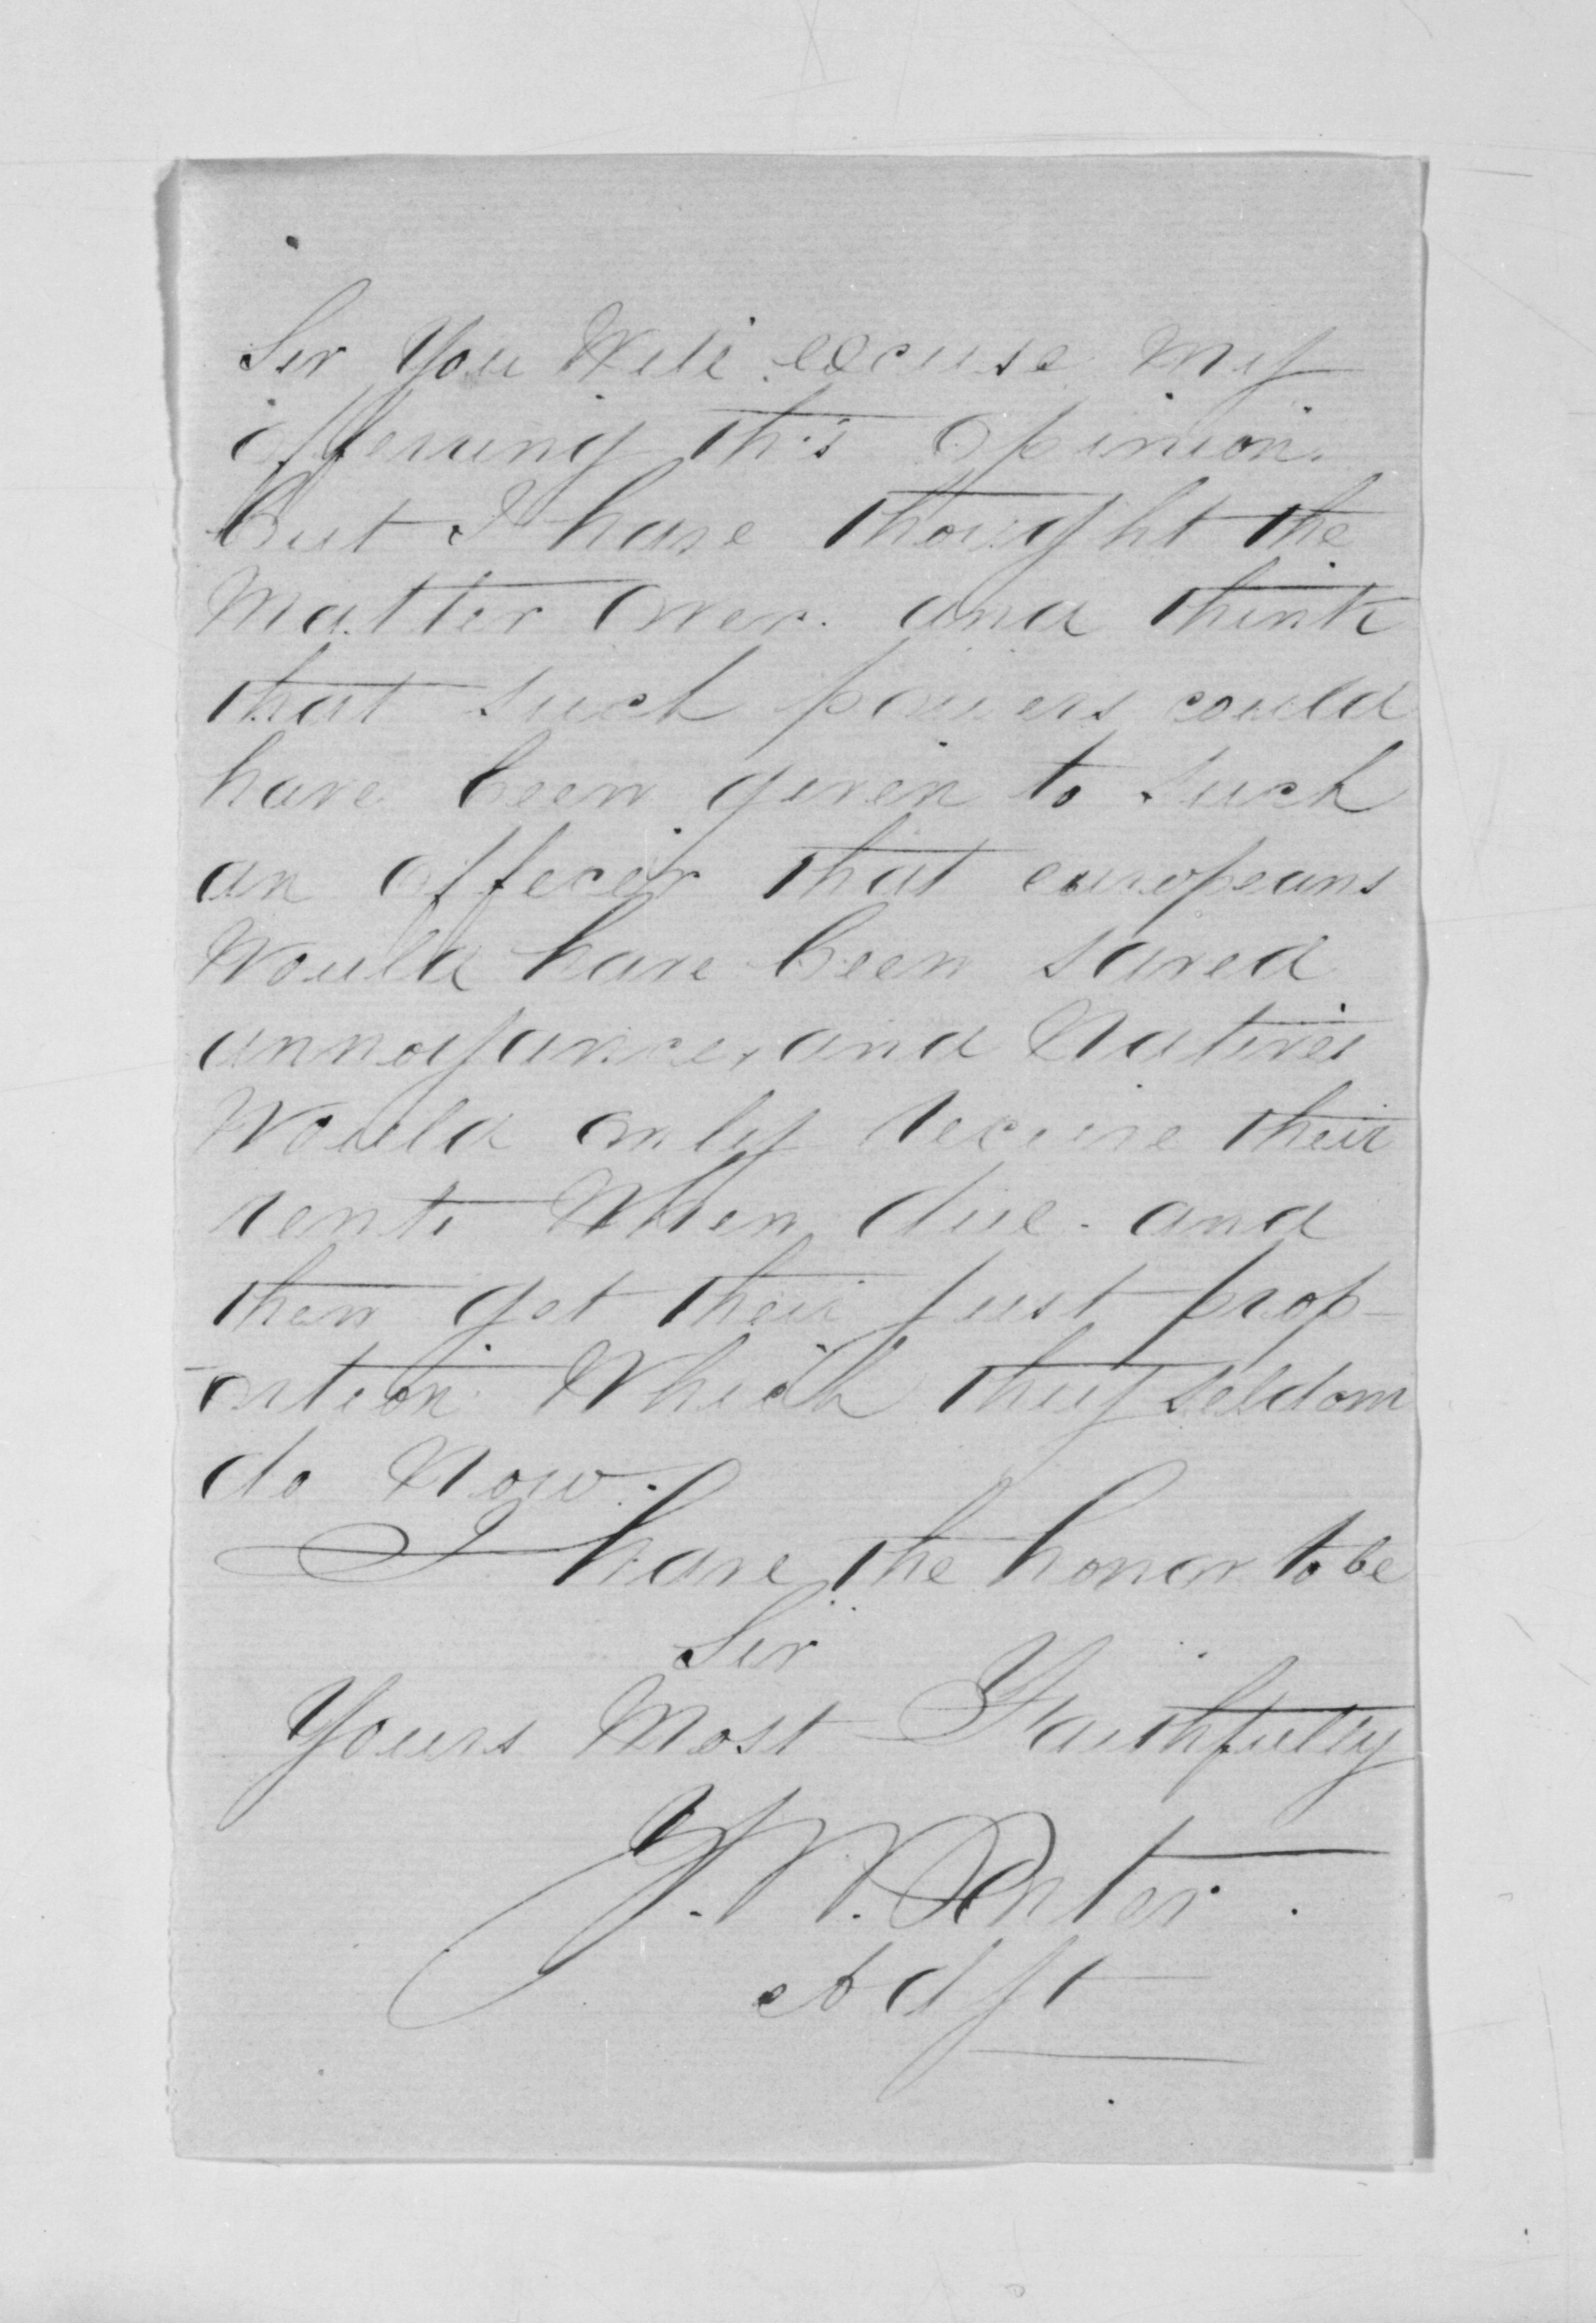 Sir You Will excuse My
offering this opinion.
But I have thought the
Matter over. and think
that such powers could
have been given to such
an officer that europeans
Would have been saved
annoyance, and Natives
Would only receive their
rents When due. and
then get their just prop-
-ortion Which they seldom
do Now.
I have the honor to be
Sir
Yours Most Faithfully
J. W. Porter.
Adjt